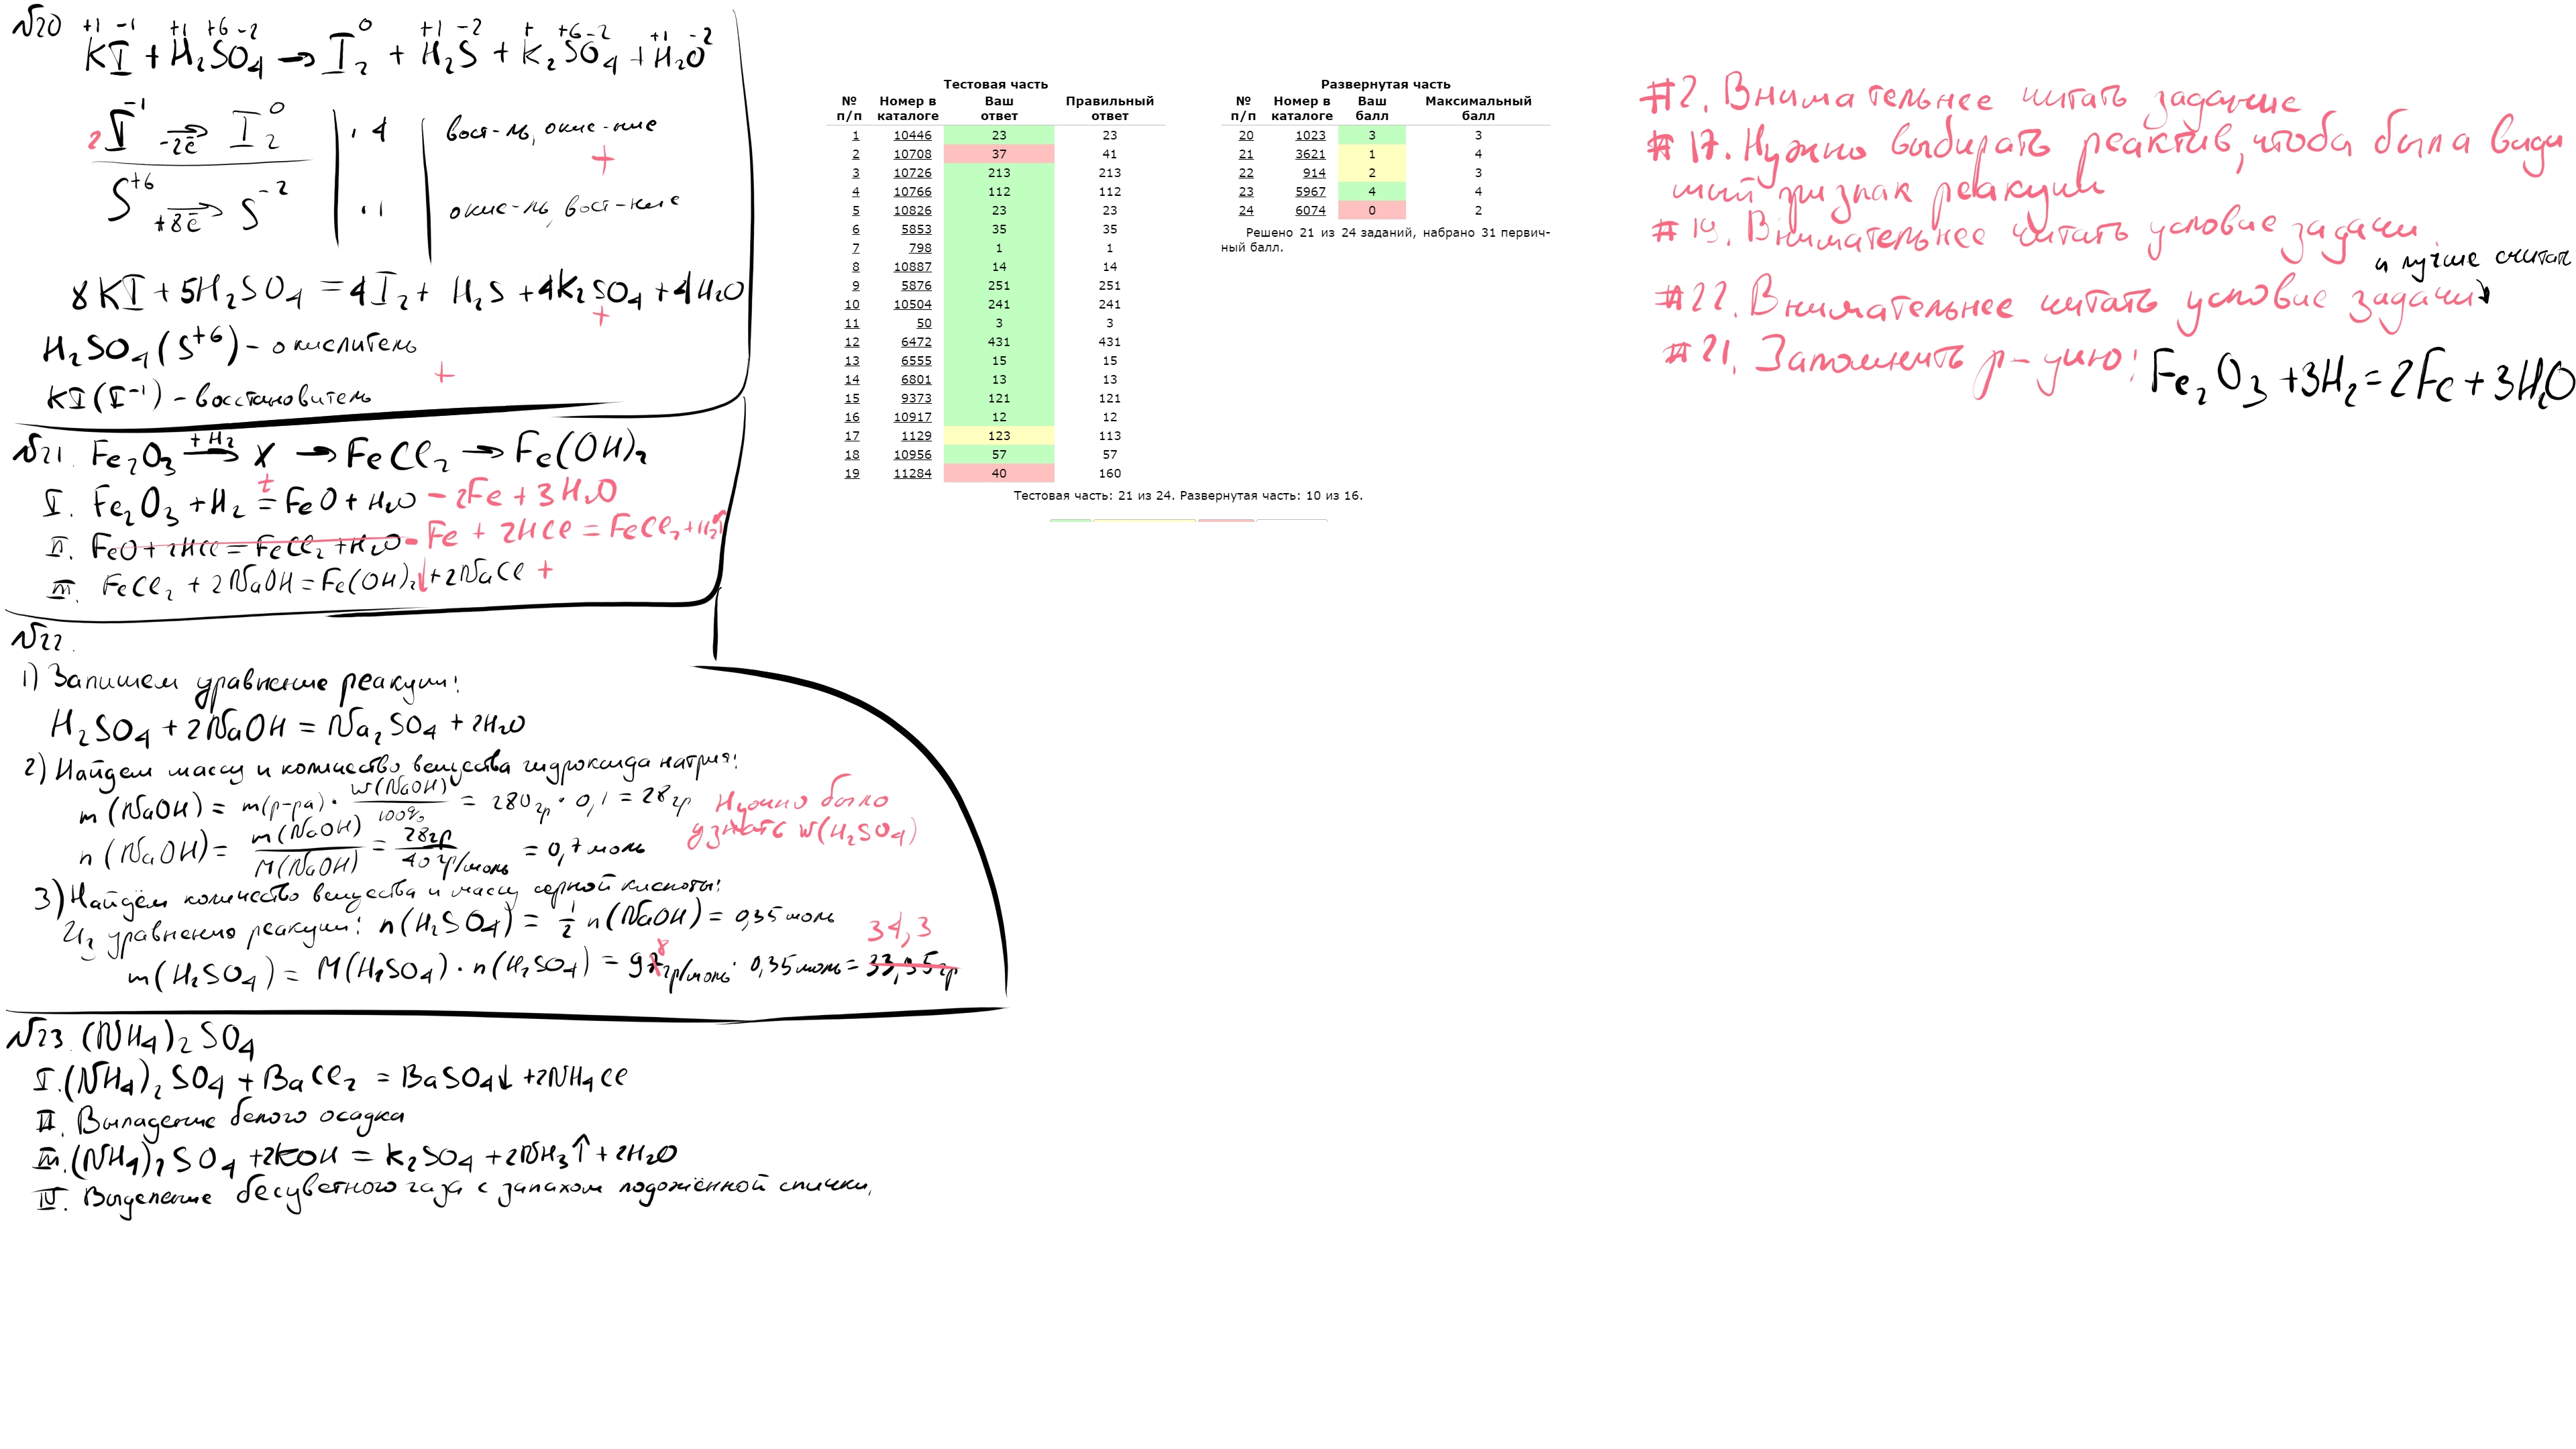 №20
+1 -1 +1 +6 -2 0 +1 -2 + +6 -2 +1 -2
KI + H₂SO₄ → I₂ + H₂S + K₂SO₄ + H₂O
2I⁻¹ -2ē → I₂⁰ | ·4 | вост-ль, окис-ние
+
S⁺⁶ +8ē → S⁻² | ·1 | окис-ль, вост-ние
8KI + 5H₂SO₄ = 4I₂ + H₂S + 4K₂SO₄ + 4H₂O
+
H₂SO₄ (S⁺⁶) - окислитель
+
KI (I⁻¹) - восстановитель
№21. Fe₂O₃ +H₂ → X → FeCl₂ → Fe(OH)₂
I. Fe₂O₃ + H₂ t = FeO + H₂O - 2Fe + 3H₂O
II. FeO + 2HCl = FeCl₂ + H₂O - Fe + 2HCl = FeCl₂ + H₂↑
III. FeCl₂ + 2NaOH = Fe(OH)₂↓ + 2NaCl +
№22.
1) Запишем уравнение реакции:
H₂SO₄ + 2NaOH = Na₂SO₄ + 2H₂O
2) Найдем массу и количество вещества гидроксида натрия:
m(NaOH) = m(р-ра) · w(NaOH)/100% = 280гр · 0,1 = 28гр
n(NaOH) = m(NaOH)/M(NaOH) = 28гр/40гр/моль = 0,7 моль
Нужно было
узнать w(H₂SO₄)
3) Найдём количество вещества и массу серной кислоты:
Из уравнению реакции: n(H₂SO₄) = 1/2 n(NaOH) = 0,35 моль
34,3
m(H₂SO₄) = M(H₂SO₄) · n(H₂SO₄) = 98гр/моль · 0,35 моль = 33,95гр
№23. (NH₄)₂SO₄
I. (NH₄)₂SO₄ + BaCl₂ = BaSO₄↓ + 2NH₄Cl
II. Выпадение белого осадка
III. (NH₄)₂SO₄ + 2KOH = K₂SO₄ + 2NH₃↑ + 2H₂O
IV. Выделение бесцветного газа с запахом подожённой спички.
Тестовая часть
№ п/п Номер в каталоге Ваш ответ Правильный ответ
1 10446 23 23
2 10708 37 41
3 10726 213 213
4 10766 112 112
5 10826 23 23
6 5853 35 35
7 798 1 1
8 10887 14 14
9 5876 251 251
10 10504 241 241
11 50 3 3
12 6472 431 431
13 6555 15 15
14 6801 13 13
15 9373 121 121
16 10917 12 12
17 1129 123 113
18 10956 57 57
19 11284 40 160
Развернутая часть
№ п/п Номер в каталоге Ваш балл Максимальный балл
20 1023 3 3
21 3621 1 4
22 914 2 3
23 5967 4 4
24 6074 0 2
Решено 21 из 24 заданий, набрано 31 первич-
ный балл.
Тестовая часть: 21 из 24. Развернутая часть: 10 из 16.
#2. Внимательнее читать задание
#17. Нужно выбирать реактив, чтоба была види
мый признак реакции
#19. Внимательнее читать условие задачи
и лучше считат
#22. Внимательнее читать условие задачи
#21. Запомнить р-цию: Fe₂O₃ + 3H₂ = 2Fe + 3H₂O